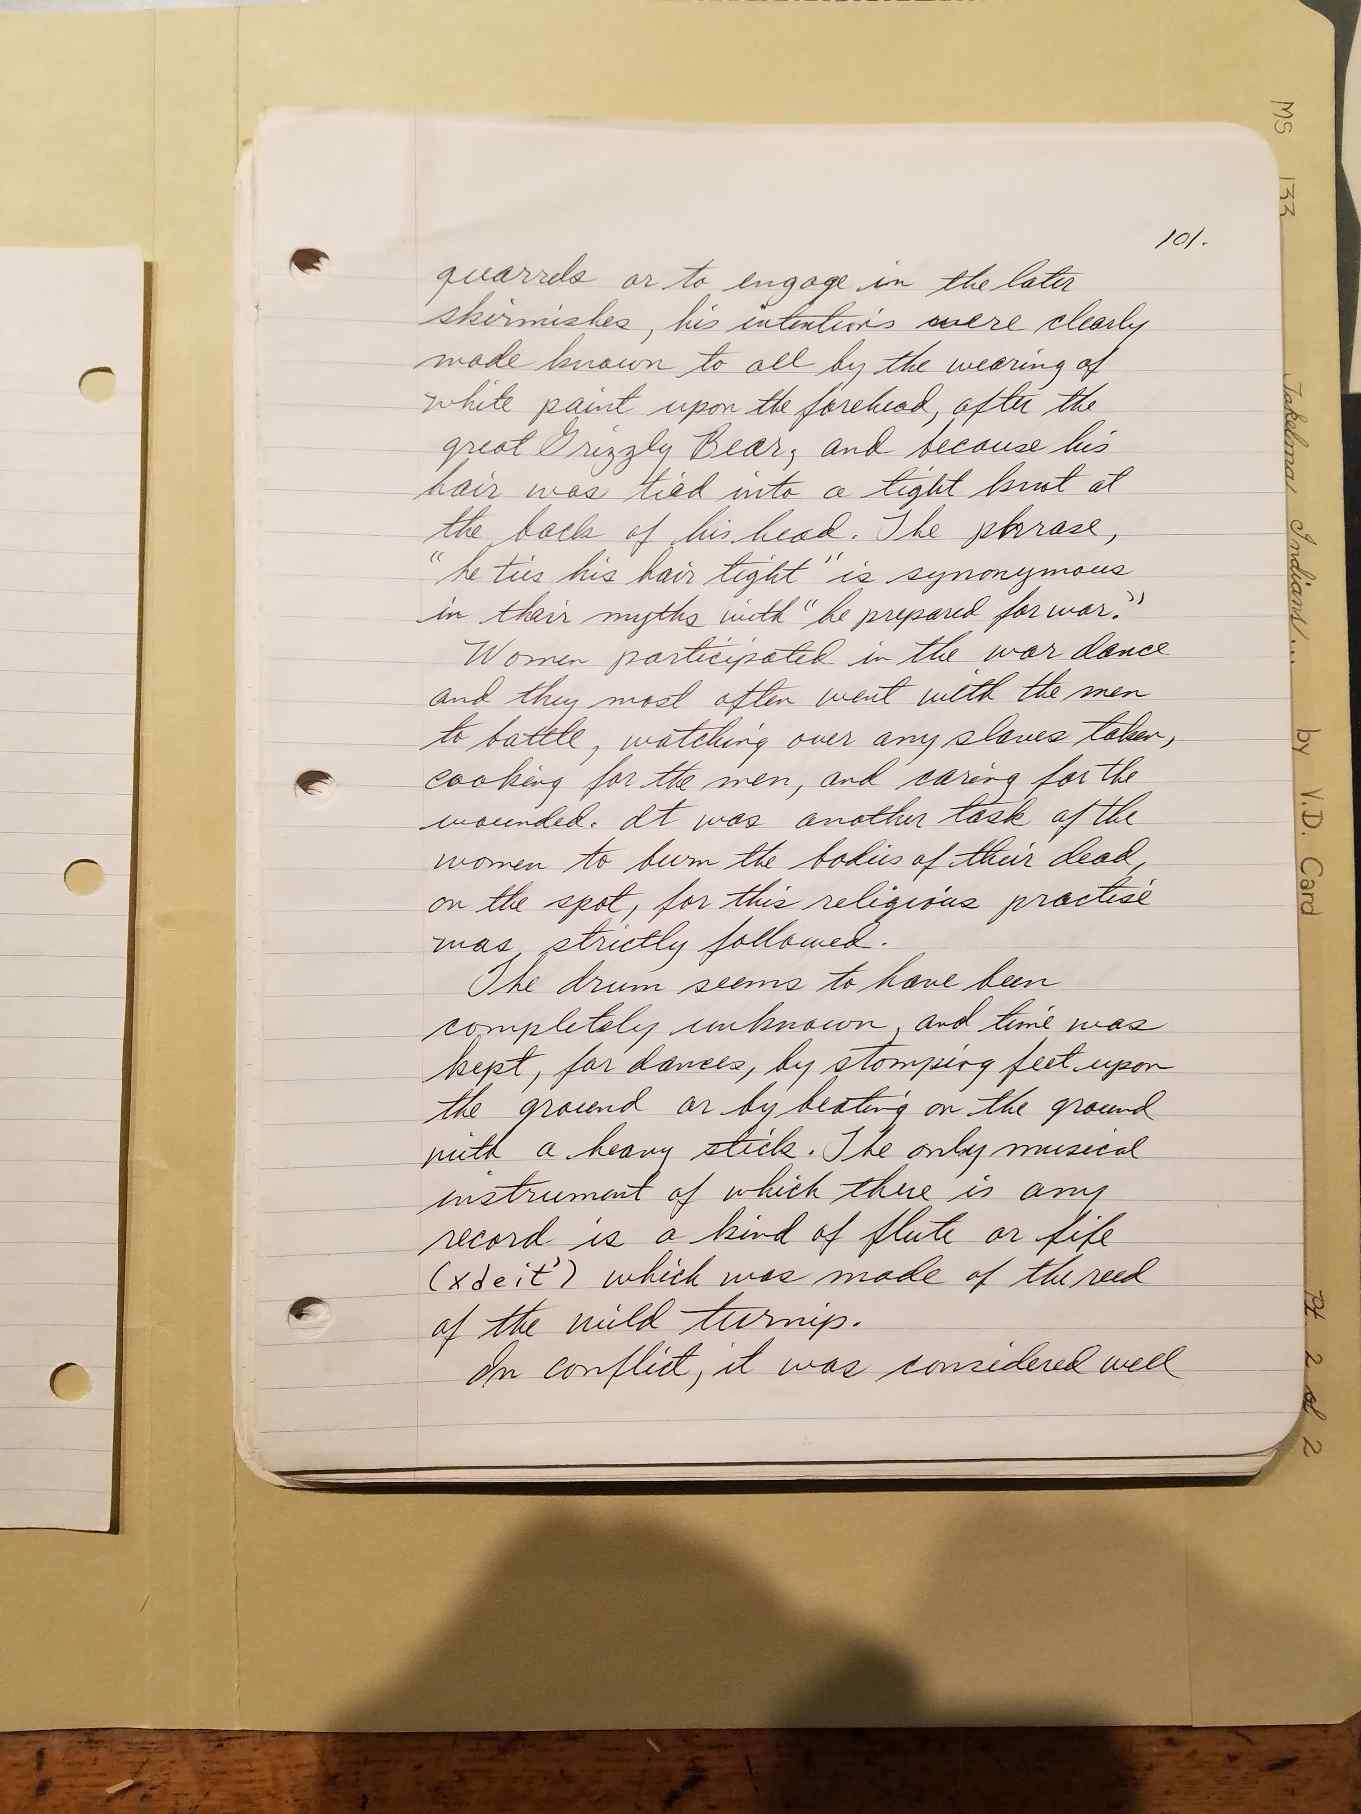 101.
quarrels or to engage in the later
skirmishes, his intentions were clearly
made known to all by the wearing of
white paint upon the forehead, after the
great Grizzly Bear, and because his
hair was tied into a tight knot at
the back of his head. The phrase,
"he ties his hair tight" is synonymous
in their myths with "he prepared for war."
Women participated in the war dance
and they most often went with the men
to battle, watching over any slaves taken,
cooking for the men, and caring for the
wounded. It was another task of the
women to burn the bodies of their dead,
on the spot, for this religious practise
was strictly followed.
The drum seems to have been
completely unknown, and time was
kept, for dances, by stomping feet upon
the ground or by beating on the ground
with a heavy stick. The only musical
instrument of which there is any
record is a kind of flute or fife
(xdeit') which was made of the reed
of the wild turnip.
In conflict, it was considered well
MS 133 Takelma Indians... by V.D. Card Pt 2 of 2